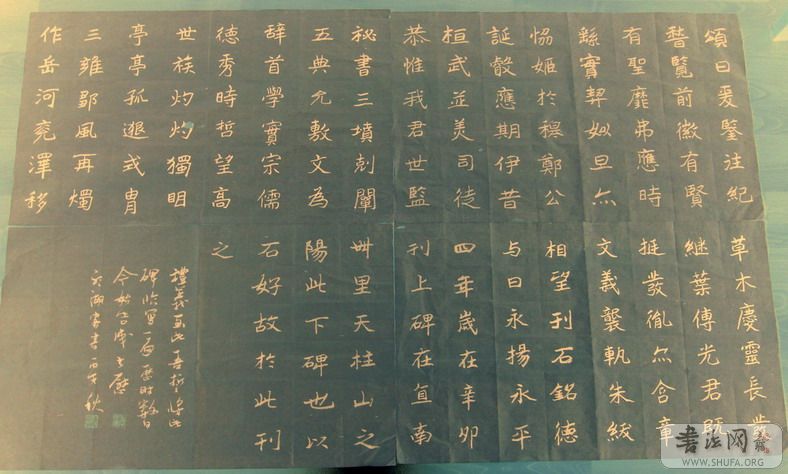 頌曰爰鑒往紀
稽覽前徽有賢
有聖靡弗應時
繇實契姒旦亦
協姬於穆鄭公
誕睿應期伊昔
桓武並美司徒
恭惟我君世監
秘書三墳剋闡
五典允敷文為
辭首學實宗儒
德秀時哲望高
世族灼灼獨明
亭亭孤邈式胄
三雍鄒風再燭
作岳河兗澤移
草木慶靈長發
継葉傅光君既
挺發胤亦含章
文義襲軌朱紱
相望刊石銘德
与日永揚永平
四年歲在辛卯
刊上碑在直南
卌里天柱山之
陽此下碑也以
石好故於此刊
之
碑臨寫
書法网
WWW.SHUFA.ORG